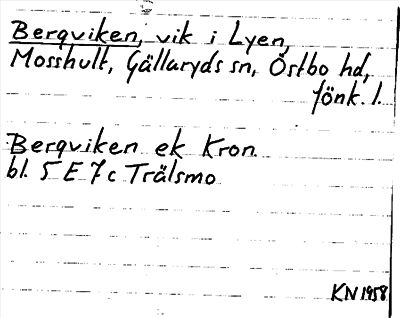 Bergviken, vik i Lyen,
Mosshult, Gällaryds sn, Östbo hd,
Jönk. l.
Bergviken ek Kron
bl. 5 E 7 c Trälsmo
KN 1958